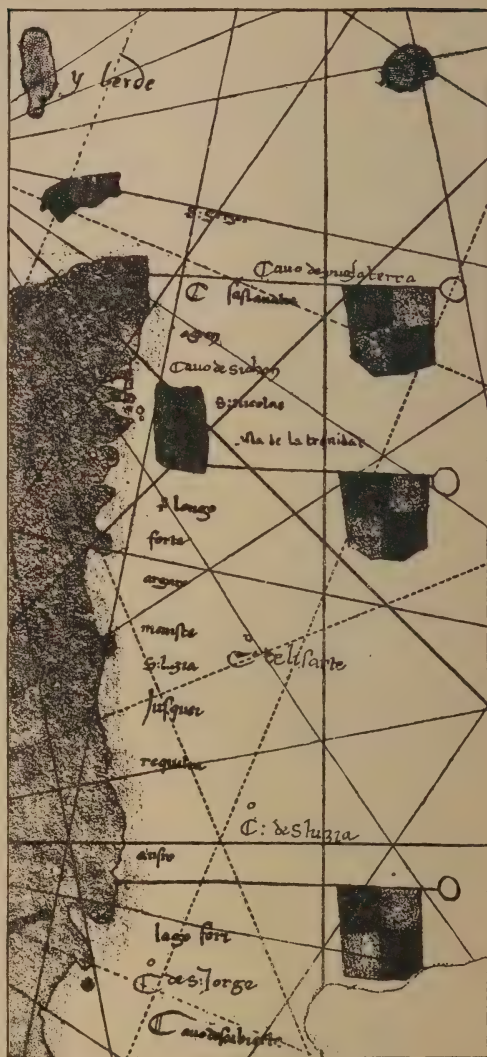 y berde
s: grigor
Cauo de ynglaterra
C
agron
Cauo de
s: nicolas
ysla de la trenidat
ro longo
forte
meniste
s: luzia
Co de lisarte
Jusquei
requilea
Co: de s luzia
lago fori
Co de s: Jorge
Cauo descubierto